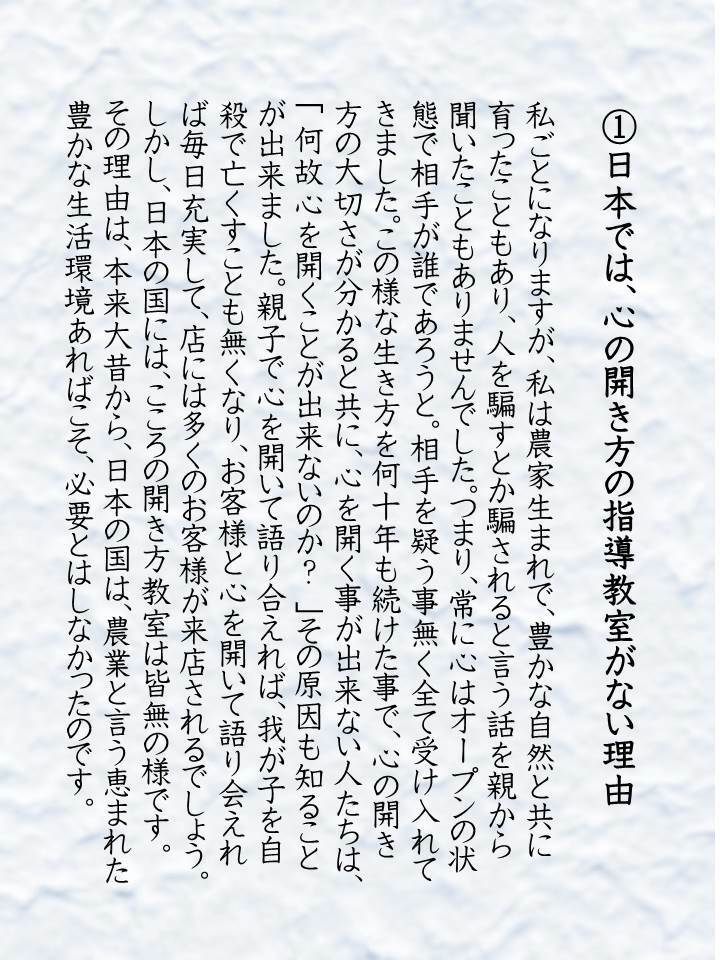 ①日本では、心の開き方の指導教室がない理由
私ごとになりますが、私は農家生まれで、豊かな自然と共に
育ったこともあり、人を騙すとか騙されると言う話を親から
聞いたこともありませんでした。つまり、常に心はオープンの状
態で相手が誰であろうと。相手を疑う事無く全て受け入れて
きました。この様な生き方を何十年も続けた事で、心の開き
方の大切さが分かると共に、心を開く事が出来ない人たちは、
「何故心を開くことが出来ないのか?」その原因も知ること
が出来ました。親子で心を開いて語り合えれば、我が子を自
殺で亡くすことも無くなり、お客様と心を開いて語り会えれ
ば毎日充実して、店には多くのお客様が来店されるでしょう。
しかし、日本の国には、こころの開き方教室は皆無の様です。
その理由は、本来大昔から、日本の国は、農業と言う恵まれた
豊かな生活環境あればこそ、必要とはしなかったのです。